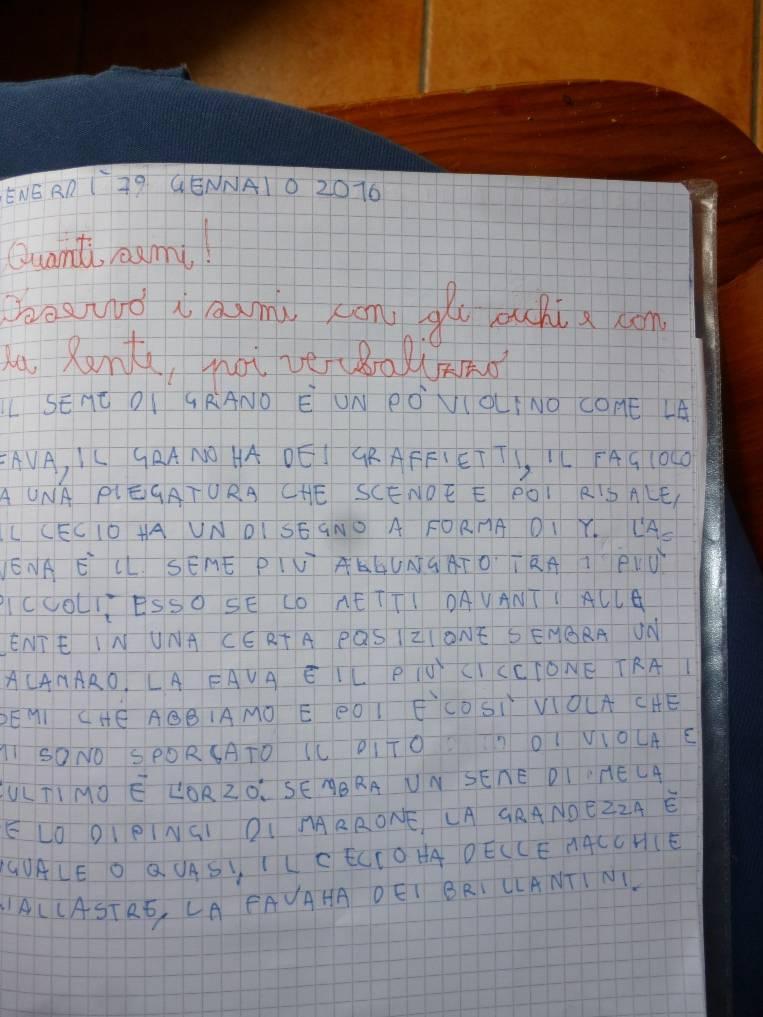 ENERDÌ 29 GENNAIO 2016
Quanti semi!
Osservo i semi con gli occhi e con
la lente, poi verbalizzo
IL SEME DI GRANO È UN PO' VIOLINO COME LA
FAVA, IL GRANO HA DEI GRAFFIETTI, IL FAGIOLO
A UNA PIEGATURA CHE SCENDE E POI RISALE,
IL CECIO HA UN DISEGNO A FORMA DI Y. L'A=
VENA È IL SEME PIÙ ALLUNGATO TRA I PIÙ
PICCOLI, ESSO SE LO METTI DAVANTI ALLA
LENTE IN UNA CERTA POSIZIONE SEMBRA UN
ALAMARO. LA FAVA È IL PIÙ CICCIONE TRA I
SEMI CHE ABBIAMO E POI È COSÌ VIOLA CHE
MI SONO SPORCATO IL DITO DI VIOLA E
L'ULTIMO È L'ORZO: SEMBRA UN SEME DI MELA
SE LO DIPINGI DI MARRONE, LA GRANDEZZA È
UGUALE O QUASI, IL CECIO HA DELLE MACCHIE
GIALLASTRE, LA FAVA HA DEI BRILLANTINI.